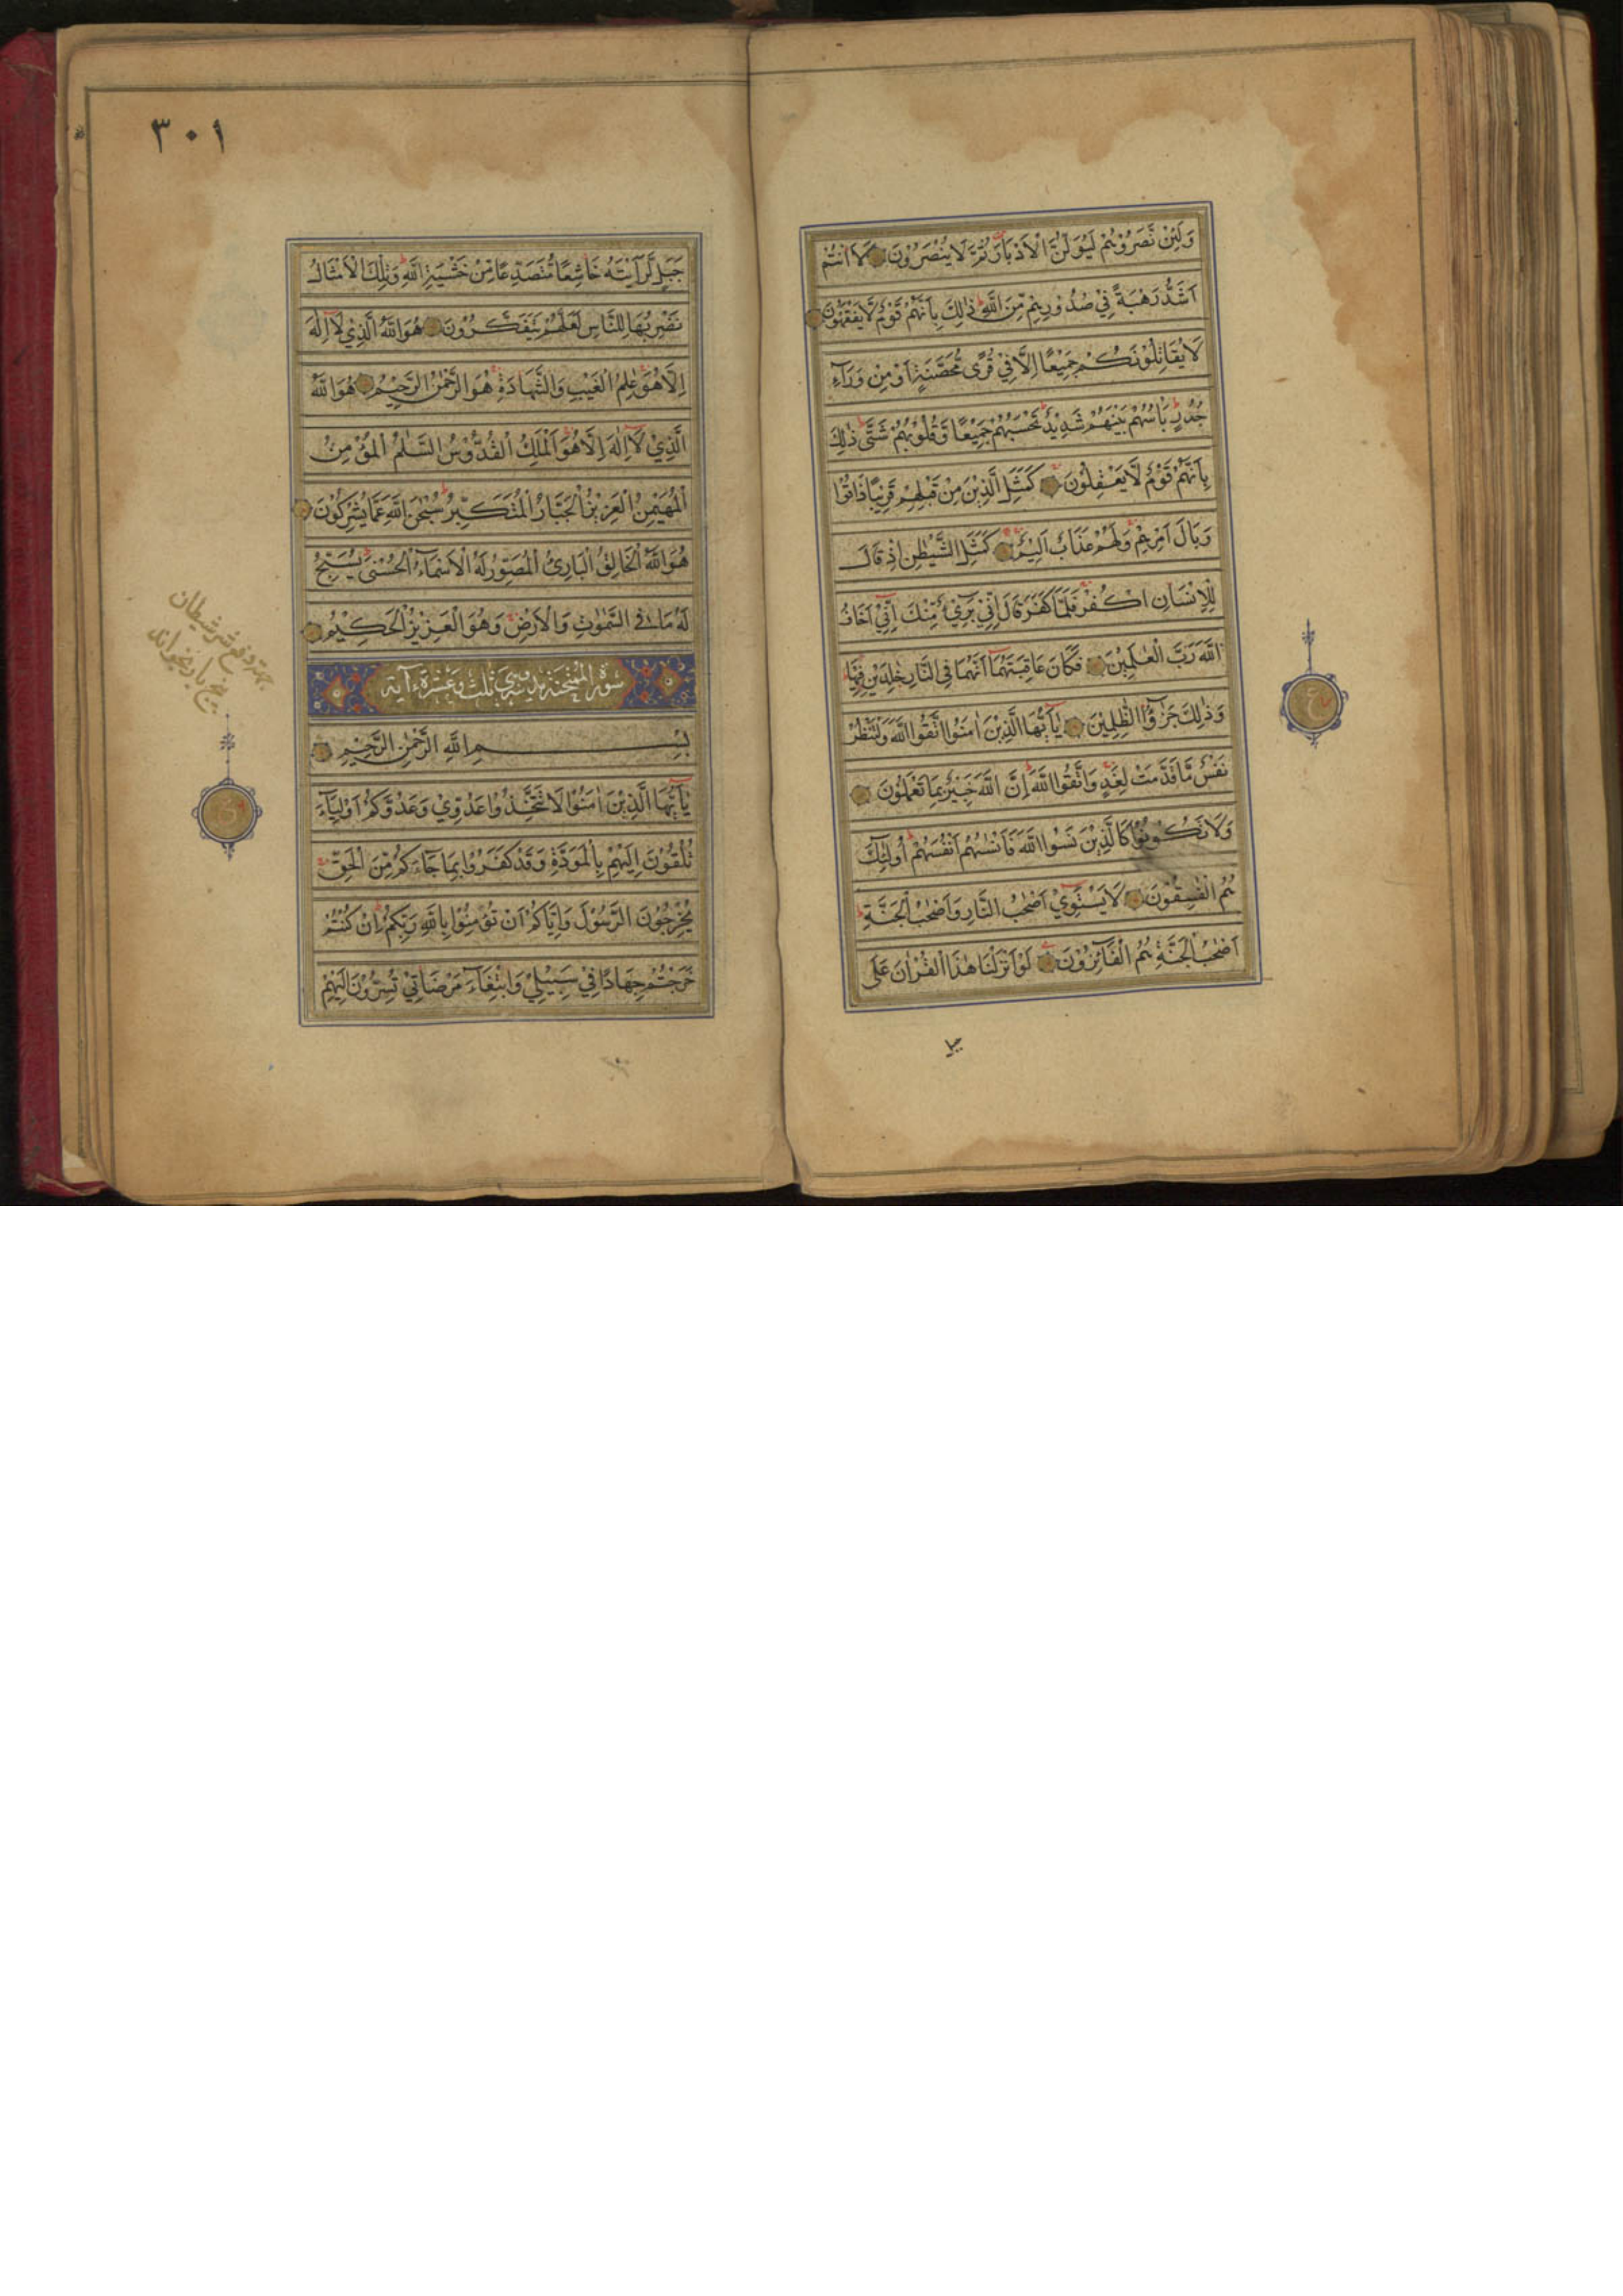 وَلَئِنْ نَّصَرُوْهُمْ لَيُوَلُّنَّ الْاَدْبَارَ ثُمَّ لَا يُنْصَرُوْنَ لَا۟اَنْتُمْ
اَشَدُّ رَهْبَةً فِيْ صُدُوْرِهِمْ مِّنَ اللّٰهِ ذٰلِكَ بِاَنَّهُمْ قَوْمٌ لَّا يَفْقَهُوْنَ
لَا يُقَاتِلُوْنَكُمْ جَمِيْعًا اِلَّا فِيْ قُرًى مُّحَصَّنَةٍ اَوْ مِنْ وَرَآءِ
جُدُرٍ بَاْسُهُمْ بَيْنَهُمْ شَدِيْدٌ تَحْسَبُهُمْ جَمِيْعًا وَّقُلُوْبُهُمْ شَتّٰى ذٰلِكَ
بِاَنَّهُمْ قَوْمٌ لَّا يَعْقِلُوْنَ كَمَثَلِ الَّذِيْنَ مِنْ قَبْلِهِمْ قَرِيْبًا ذَاقُوْا
وَبَالَ اَمْرِهِمْ وَلَهُمْ عَذَابٌ اَلِيْمٌ كَمَثَلِ الشَّيْطٰنِ اِذْ قَالَ
لِلْاِنْسَانِ اكْفُرْ فَلَمَّا كَفَرَ قَالَ اِنِّيْ بَرِيْٓءٌ مِّنْكَ اِنِّيْٓ اَخَافُ
اللّٰهَ رَبَّ الْعٰلَمِيْنَ فَكَانَ عَاقِبَتَهُمَآ اَنَّهُمَا فِي النَّارِ خٰلِدَيْنِ فِيْهَا
وَذٰلِكَ جَزٰٓؤُا الظّٰلِمِيْنَ يٰٓاَيُّهَا الَّذِيْنَ اٰمَنُوا اتَّقُوا اللّٰهَ وَلْتَنْظُرْ
نَفْسٌ مَّا قَدَّمَتْ لِغَدٍ وَاتَّقُوا اللّٰهَ اِنَّ اللّٰهَ خَبِيْرٌ بِمَا تَعْمَلُوْنَ
وَلَا تَكُوْنُوْا كَالَّذِيْنَ نَسُوا اللّٰهَ فَاَنْسٰىهُمْ اَنْفُسَهُمْ اُولٰٓئِكَ
هُمُ الْفٰسِقُوْنَ لَا يَسْتَوِيْٓ اَصْحٰبُ النَّارِ وَاَصْحٰبُ الْجَنَّةِ
اَصْحٰبُ الْجَنَّةِ هُمُ الْفَآئِزُوْنَ لَوْ اَنْزَلْنَا هٰذَا الْقُرْاٰنَ عَلٰى
جبل
ع
٣٠١
جَبَلٍ لَّرَاَيْتَهٗ خَاشِعًا مُّتَصَدِّعًا مِّنْ خَشْيَةِ اللّٰهِ وَتِلْكَ الْاَمْثَالُ
نَضْرِبُهَا لِلنَّاسِ لَعَلَّهُمْ يَتَفَكَّرُوْنَ هُوَ اللّٰهُ الَّذِيْ لَآ اِلٰهَ
اِلَّا هُوَ عٰلِمُ الْغَيْبِ وَالشَّهَادَةِ هُوَ الرَّحْمٰنُ الرَّحِيْمُ هُوَ اللّٰهُ
الَّذِيْ لَآ اِلٰهَ اِلَّا هُوَ اَلْمَلِكُ الْقُدُّوْسُ السَّلٰمُ الْمُؤْمِنُ
الْمُهَيْمِنُ الْعَزِيْزُ الْجَبَّارُ الْمُتَكَبِّرُ سُبْحٰنَ اللّٰهِ عَمَّا يُشْرِكُوْنَ
هُوَ اللّٰهُ الْخَالِقُ الْبَارِئُ الْمُصَوِّرُ لَهُ الْاَسْمَآءُ الْحُسْنٰى يُسَبِّحُ
لَهٗ مَا فِي السَّمٰوٰتِ وَالْاَرْضِ وَهُوَ الْعَزِيْزُ الْحَكِيْمُ
سورة الممتحنة مدنية وهي ثلث وعشرة آية
بِسْمِ اللّٰهِ الرَّحْمٰنِ الرَّحِيْمِ
يٰٓاَيُّهَا الَّذِيْنَ اٰمَنُوْا لَا تَتَّخِذُوْا عَدُوِّيْ وَعَدُوَّكُمْ اَوْلِيَآءَ
تُلْقُوْنَ اِلَيْهِمْ بِالْمَوَدَّةِ وَقَدْ كَفَرُوْا بِمَا جَآءَكُمْ مِّنَ الْحَقِّ
يُخْرِجُوْنَ الرَّسُوْلَ وَاِيَّاكُمْ اَنْ تُؤْمِنُوْا بِاللّٰهِ رَبِّكُمْ اِنْ كُنْتُمْ
خَرَجْتُمْ جِهَادًا فِيْ سَبِيْلِيْ وَابْتِغَآءَ مَرْضَاتِيْ تُسِرُّوْنَ اِلَيْهِمْ
شر شيطان